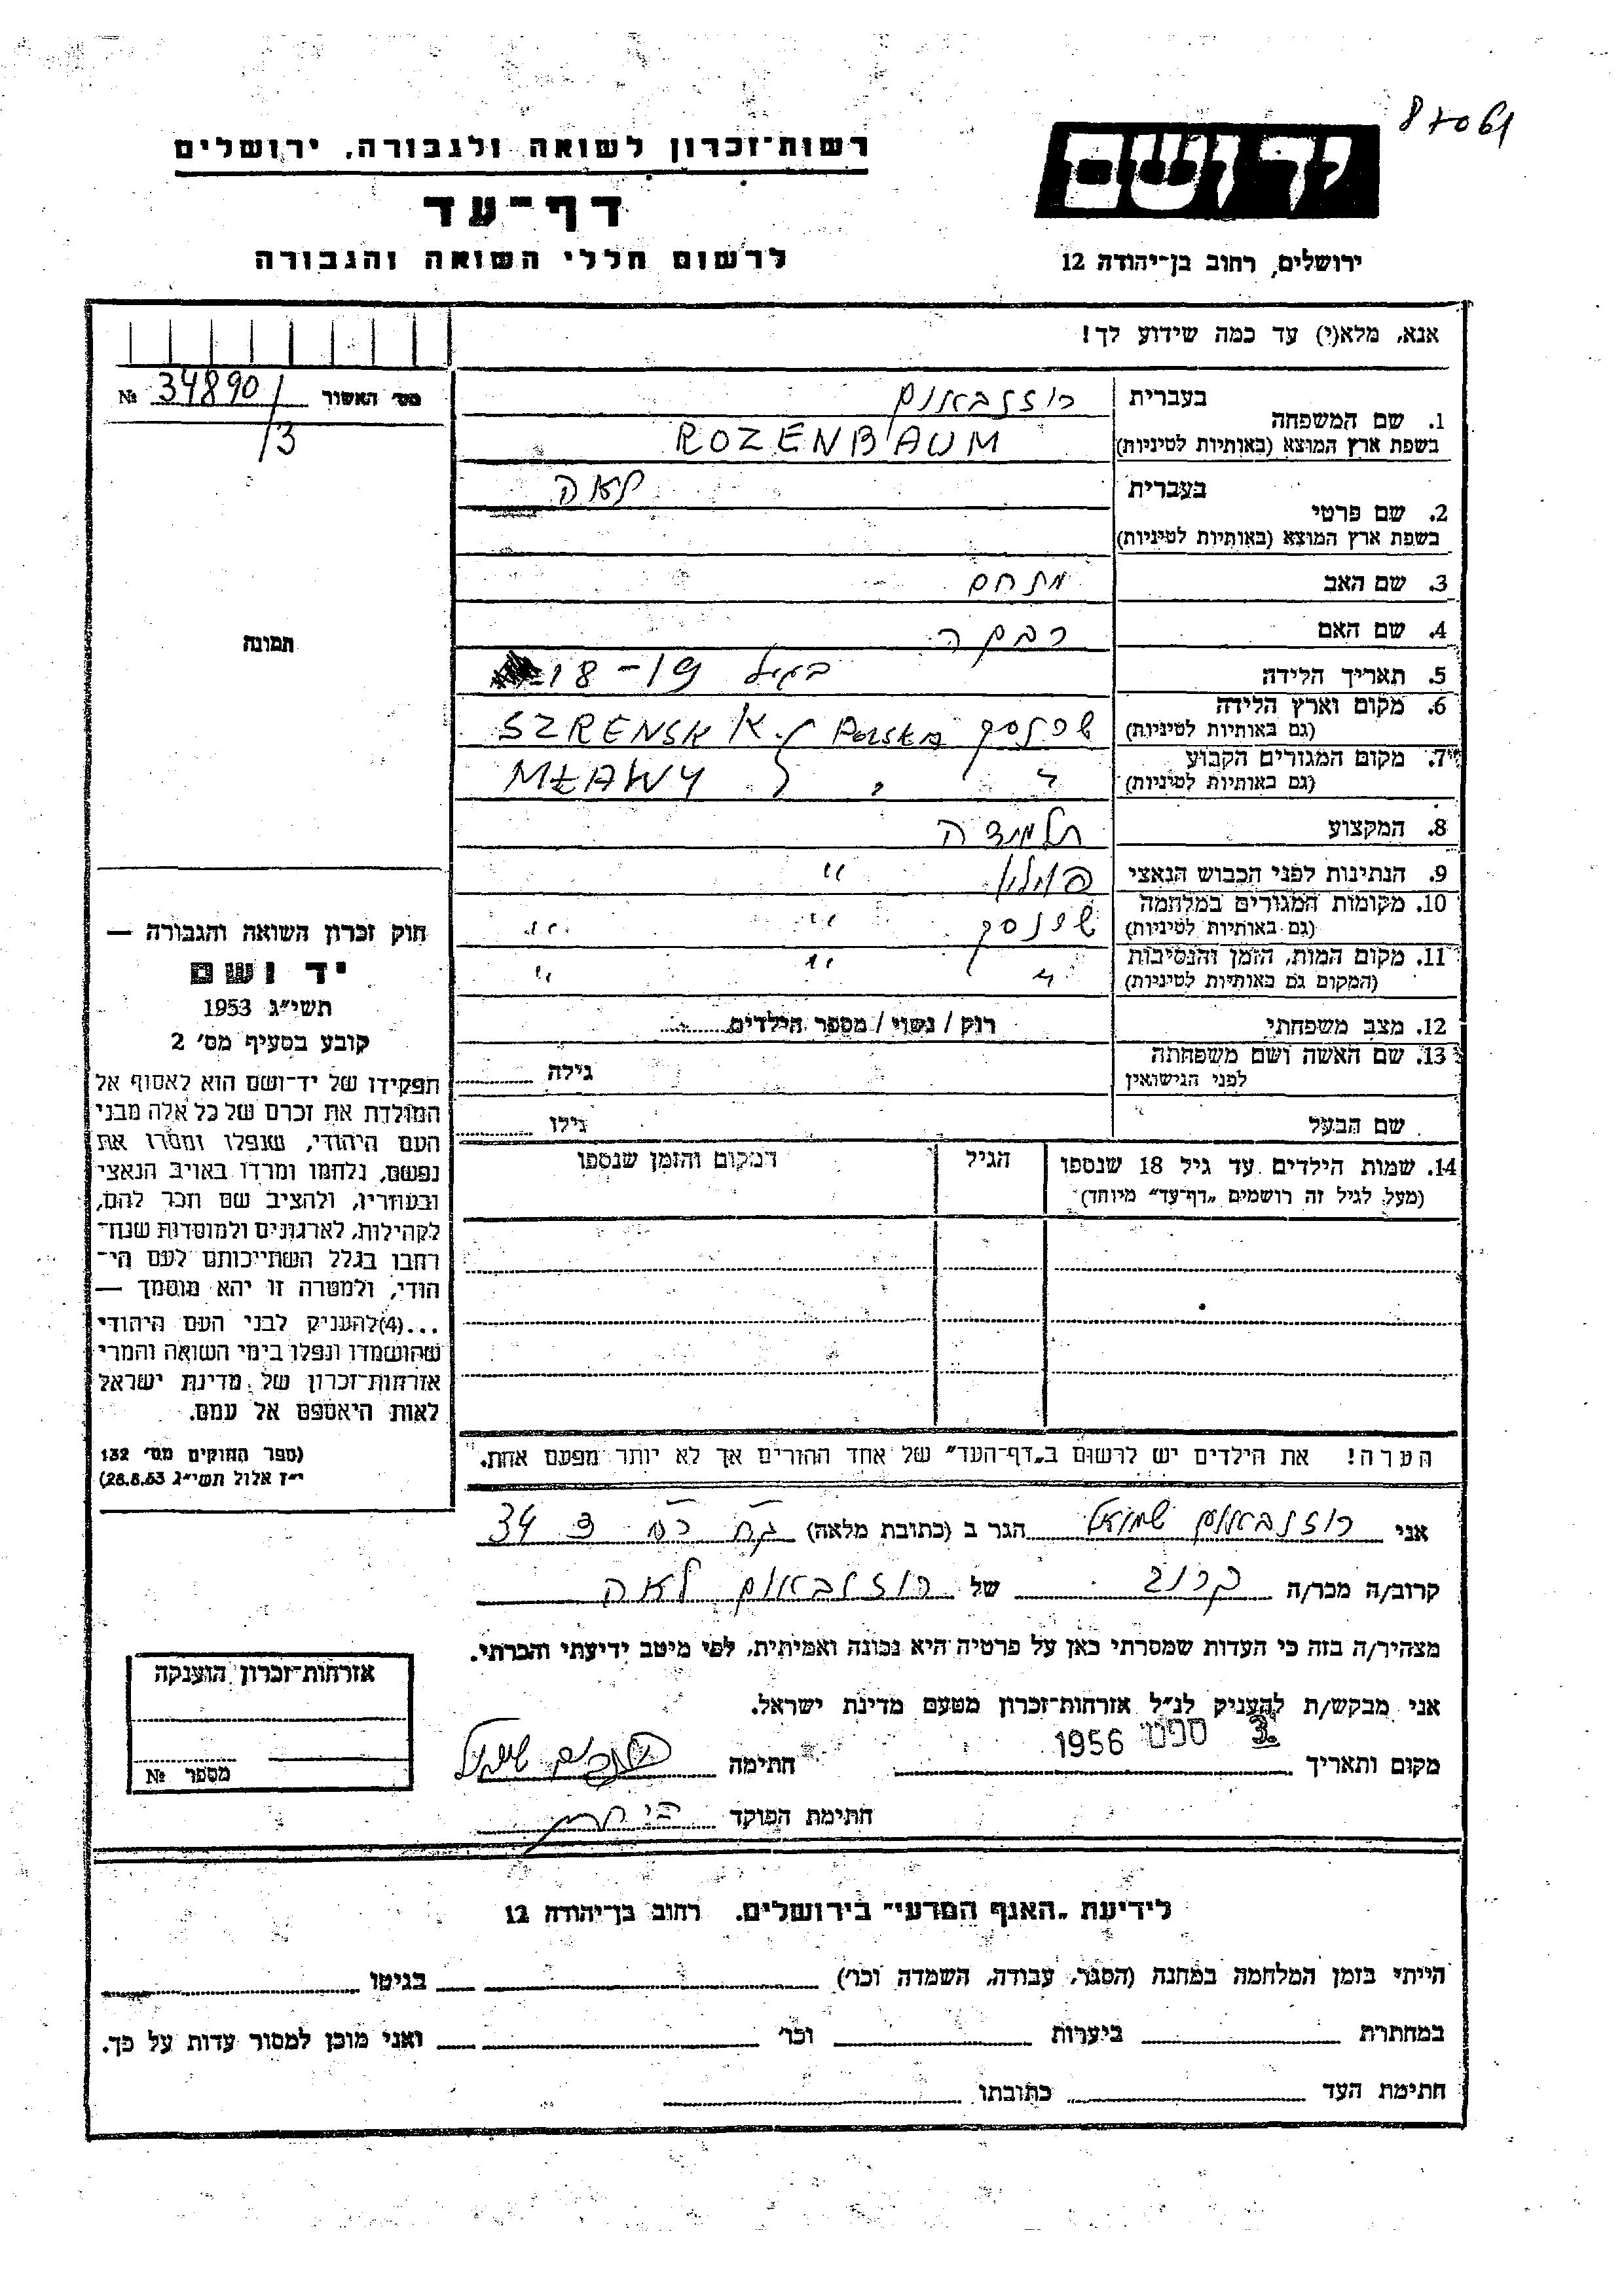 87061
רשות־זכרון לשואה ולגבורה, ירושלים
דף־עד
לרשום חללי השואה והגבורה
יד ושם
ירושלים, רחוב בן־יהודה 12
אנא, מלא(י) עד כמה שידוע לך!
מס' האשור 34890/ №
/3
תמונה
1. שם המשפחה
בעברית רוזנבאום
בשפת ארץ המוצא (באותיות לטיניות) ROZENBAUM
2. שם פרטי
בעברית לאה
בשפת ארץ המוצא (באותיות לטיניות)
3. שם האב מנחם
4. שם האם רבקה
5. תאריך הלידה בגיל 18-19
6. מקום וארץ הלידה
(גם באותיות לטיניות) שרנסק Polska / SZRENSK K.
7. מקום המגורים הקבוע
(גם באותיות לטיניות) " " MŁAWY
8. המקצוע תלמידה
9. הנתינות לפני הכבוש הנאצי פולין "
10. מקומות המגורים במלחמה
(גם באותיות לטיניות) שרנסק " "
11. מקום המות, הזמן והנסיבות
(המקום גם באותיות לטיניות) " " "
12. מצב משפחתי רווק / נשוי / מספר הילדים
13. שם האשה ושם משפחתה
לפני הנישואין גילה
שם הבעל גילו
14. שמות הילדים עד גיל 18 שנספו הגיל המקום והזמן שנספו
(מעל לגיל זה רושמים „דף־עד" מיוחד)
הערה! את הילדים יש לרשום ב„דף־העד" של אחד ההורים אך לא יותר מפעם אחת.
חוק זכרון השואה והגבורה —
יד ושם
תשי"ג 1953
קובע בסעיף מס' 2
תפקידו של יד־ושם הוא לאסוף אל
המולדת את זכרם של כל אלה מבני
העם היהודי, שנפלו ומסרו את
נפשם, נלחמו ומרדו באויב הנאצי
ובעוזריו, ולהציב שם וזכר להם,
לקהילות, לארגונים ולמוסדות שנח־
רבו בגלל השתייכותם לעם הי־
הודי, ולמטרה זו יהא מוסמך —
...(4) להעניק לבני העם היהודי
שהושמדו ונפלו בימי השואה והמרי
אזרחות־זכרון של מדינת ישראל
לאות היאספם אל עמם.
(ספר החוקים מס' 132
י"ז אלול תשי"ג 28.8.53)
אני רוזנבאום שמואל הגר ב (כתובת מלאה) 34
קרוב/ה מכר/ה קרוב של רוזנבאום לאה
מצהיר/ה בזה כי העדות שמסרתי כאן על פרטיה היא נכונה ואמיתית, לפי מיטב ידיעתי והכרתי.
אני מבקש/ת להעניק לנ"ל אזרחות־זכרון מטעם מדינת ישראל.
מקום ותאריך 3. ספט 1956 חתימה
חתימת הפוקד
אזרחות־זכרון הוענקה
מספר №
לידיעת „האגף המדעי" בירושלים. רחוב בן־יהודה 12
הייתי בזמן המלחמה במחנה (הסגר, עבודה, השמדה וכו') בגיטו
במחתרת ביערות וכו' ואני מוכן למסור עדות על כך.
חתימת העד כתובתו